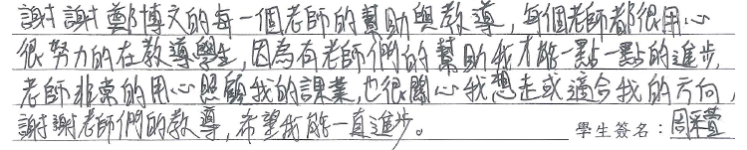 謝謝鄭博文的每一個老師的幫助與教導，每個老師都很用心
很努力的在教導學生，因為有老師們的幫助我才能一點一點的進步，
老師非常的用心照顧我的課業，也很關心我想走或適合我的方向，
謝謝老師們的教導，希望我能一直進步。 學生簽名：周采萱